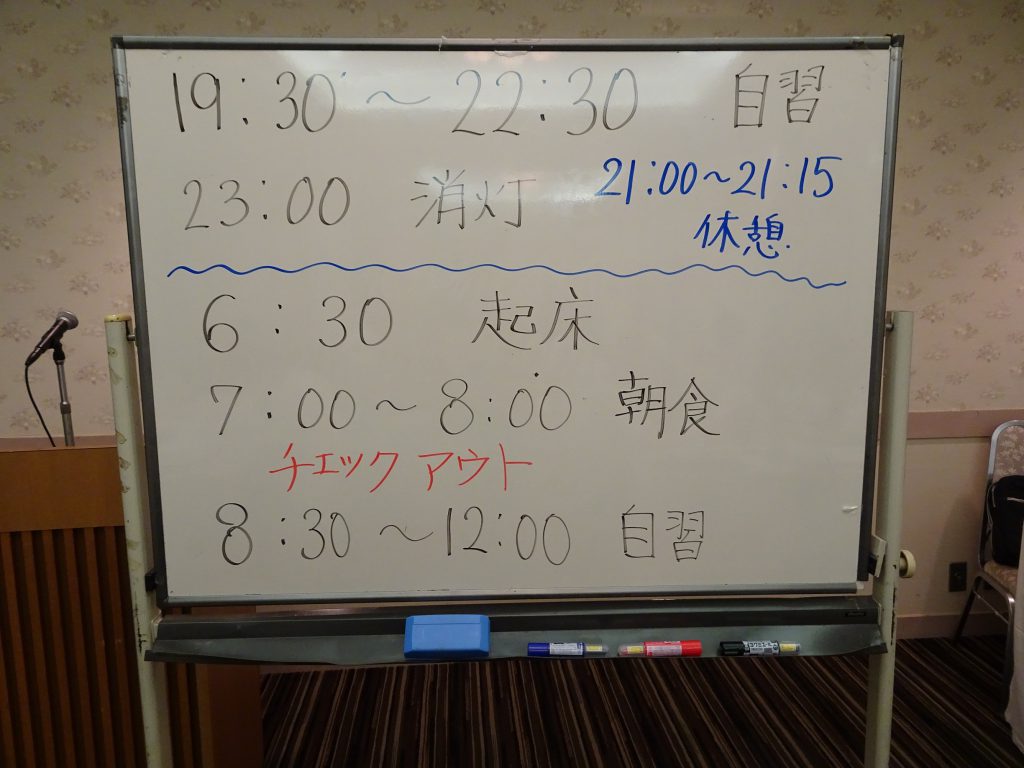 19:30～22:30 自習
23:00 消灯
21:00～21:15
休憩
6:30 起床
7:00～8:00 朝食
チェックアウト
8:30～12:00 自習